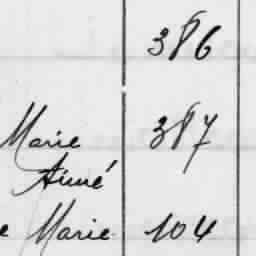 386
Marie 387
Aimé
e Marie 104